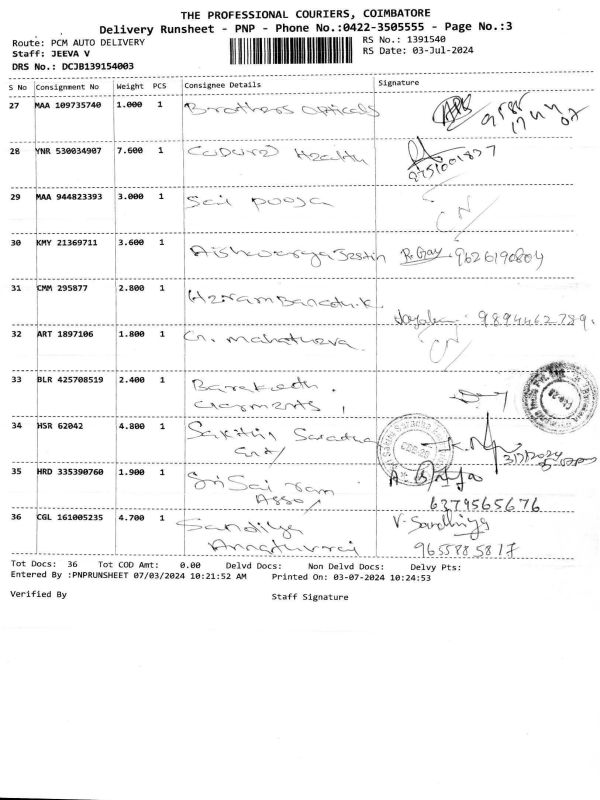 THE PROFESSIONAL COURIERS, COIMBATORE
Delivery Runsheet - PNP - Phone No.:0422-3505555 - Page No.:3
Route: PCM AUTO DELIVERY
RS No.: 1391540
Staff: JEEVA V
RS Date: 03-Jul-2024
DRS No.: DCJB139154003
S No Consignment No Weight PCS Consignee Details Signature
27 MAA 109735740 1.000 1 Brothers opticals
28 YNR 530034907 7.600 1
8751001877
29 MAA 944823393 3.000 1 Sai pooja CN
30 KMY 21369711 3.600 1 Aishwarya Jestin 9626190804
31 CMM 295877 2.800 1
9894462789.
32 ART 1897106 1.800 1 CN
33 BLR 425708519 2.400 1
Garments,
34 HSR 62042 4.800 1 Sarada
35 HRD 335390760 1.900 1 Sri Sai ram
Asso,
6379565676
36 CGL 161005235 4.700 1 Sandilya V. Sandhiya
9655885817
Tot Docs: 36 Tot COD Amt: 0.00 Delvd Docs: Non Delvd Docs: Delvy Pts:
Entered By :PNPRUNSHEET 07/03/2024 10:21:52 AM Printed On: 03-07-2024 10:24:53
Verified By
Staff Signature